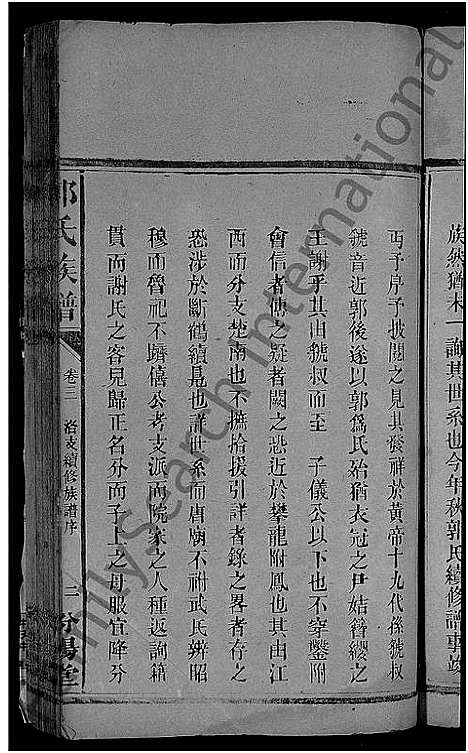 族然猶未一詢其世系也今年秋郭氏續修譜事竣
丐予序予披閱之見其發祥於黃帝十九代孫虢叔
虢音近郭後遂以郭爲氏殆猶衣冠之尹姞簪纓之
王謝乎其由虢叔而至 子儀公以下也不穿鑿附
會信者傳之疑者闕之恐近於攀龍附鳳也其由江
西而分支楚南也不摭拾援引詳者錄之畧者存之
恐涉於斷鶴續鳧也詳世系而唐廟不祔武氏辨昭
穆而魯祀不躋僖公考支派而阮家之人種返詢籍
貫而謝氏之容兒歸正名分而子上之母服宜降分
郭氏族譜
卷三 洛支續修族譜序
二 汾陽堂
FamilySearch International